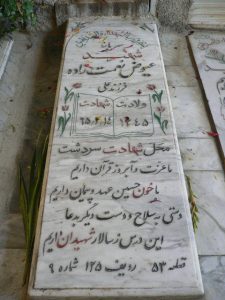 شهید
عیوض نعمت زاده
فرزند علی
ولادت شهادت
۱۳۴۵ ۶۵٫۲٫۱۵
محل شهادت سردشت
ما عزت و آبرو ز قرآن داریم
با خون حسین عهد و پیمان داریم
دستی به سلاح و دست دیگر به دعا
این درس ز سالار شهیدان داریم
قطعه ۵۳ ردیف ۱۲۵ شماره ۹